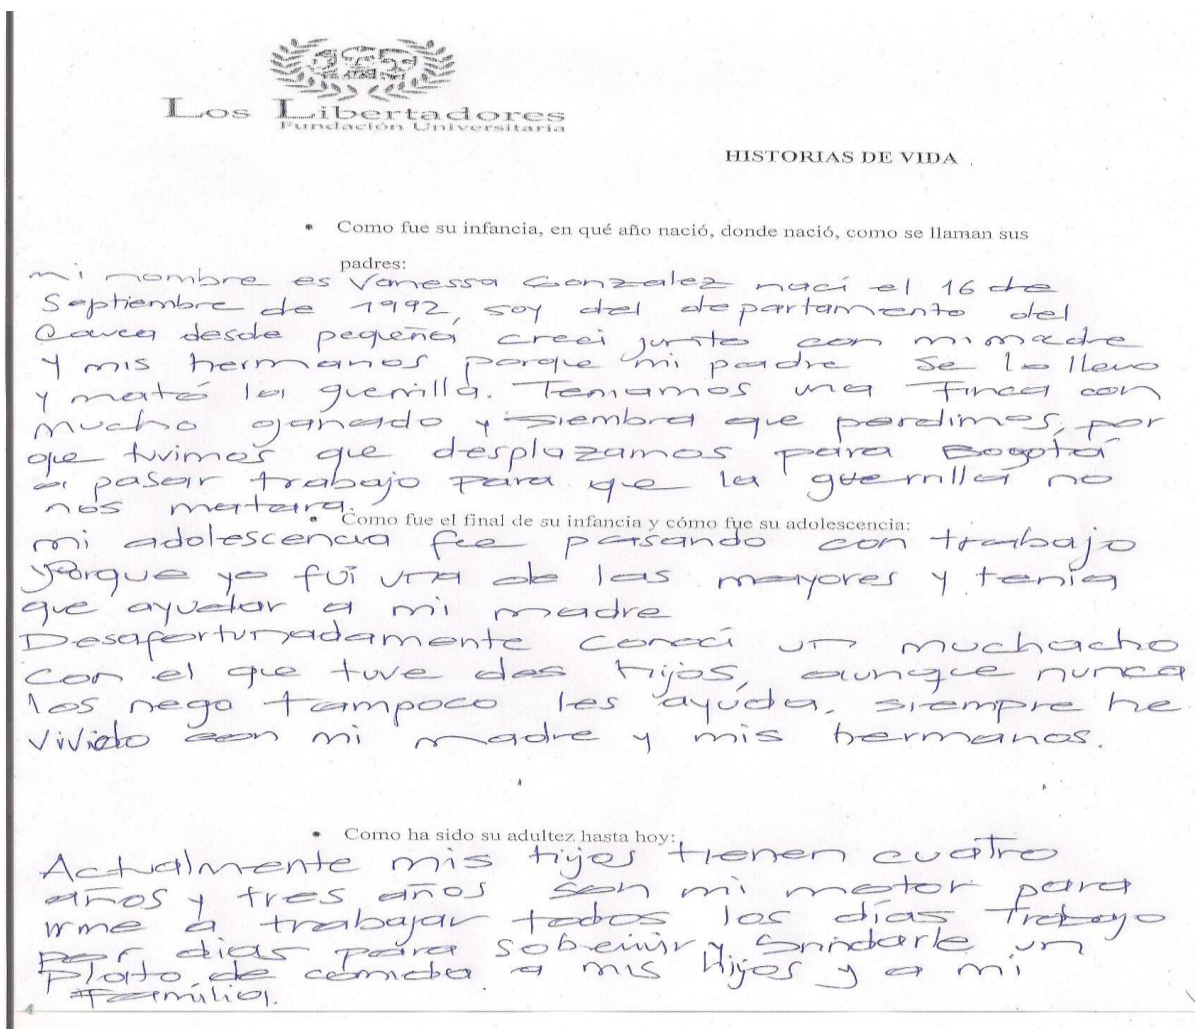 Los Libertadores
Fundación Universitaria
HISTORIAS DE VIDA
• Como fue su infancia, en qué año nació, donde nació, como se llaman sus
padres:
mi nombre es Vanessa Gonzalez nací el 16 de
Septiembre de 1992, soy del departamento del
Cauca desde pequeña creci junto con mi madre
y mis hermanos porque mi padre se lo llevo
y mató la guerrilla. Teniamos una finca con
mucho ganado y siembra que perdimos, por
que tuvimos que desplazarnos para Bogotá
a pasar trabajo para que la guerrilla no
nos matara.
• Como fue el final de su infancia y cómo fue su adolescencia:
mi adolescencia fue pasando con trabajo
Porque yo fui una de las mayores y tenia
que ayudar a mi madre
Desafortunadamente conocí un muchacho
con el que tuve dos hijos, aunque nunca
los nego tampoco les ayuda. siempre he
vivido con mi madre y mis hermanos.
• Como ha sido su adultez hasta hoy:
Actualmente mis hijos tienen cuatro
años y tres años son mi motor para
irme a trabajar todos los días Trabajo
por dias para y un
Plato de comida a mis Hijos y a mi
Familia.